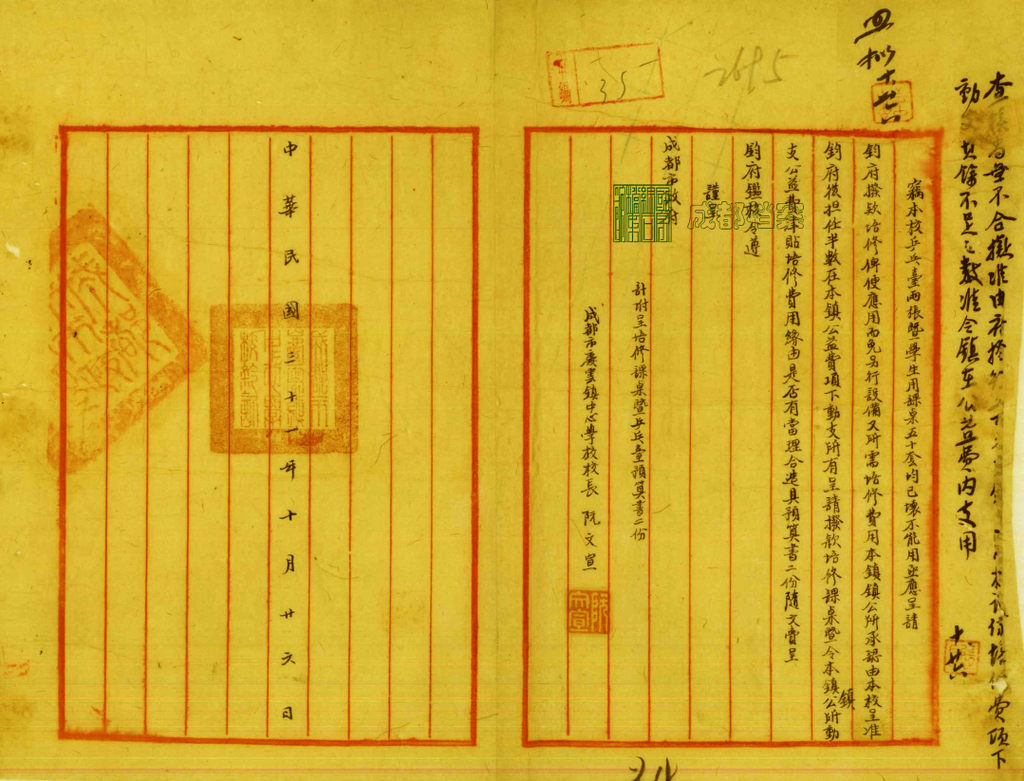 回
擬
十廿六
查
無不合擬准由府
培修費項下
動支其餘不足之數准令鎮在公益費內支用
十廿六
2695
35
竊本校乒乓臺兩張暨學生用課桌五十套均已壞不能用亟應呈請
鈞府撥款培修俾便應用而免另行設備又所需培修費用本鎮鎮公所承認由本校呈准
鈞府後担任半數在本鎮公益費項下動支所有呈請撥款培修課桌暨令本鎮公所動
鎮
支公益費津貼培修費用緣由是否有當理合造具預算書二份隨文賫呈
鈞府鑑核令遵
謹呈
成都市政府
成都档案
計附呈培修課桌暨乒乓臺預算書二份
成都市慶雲鎮中心學校校長 阮文宣
阮文宣
中華民國三十一年十月廿六日